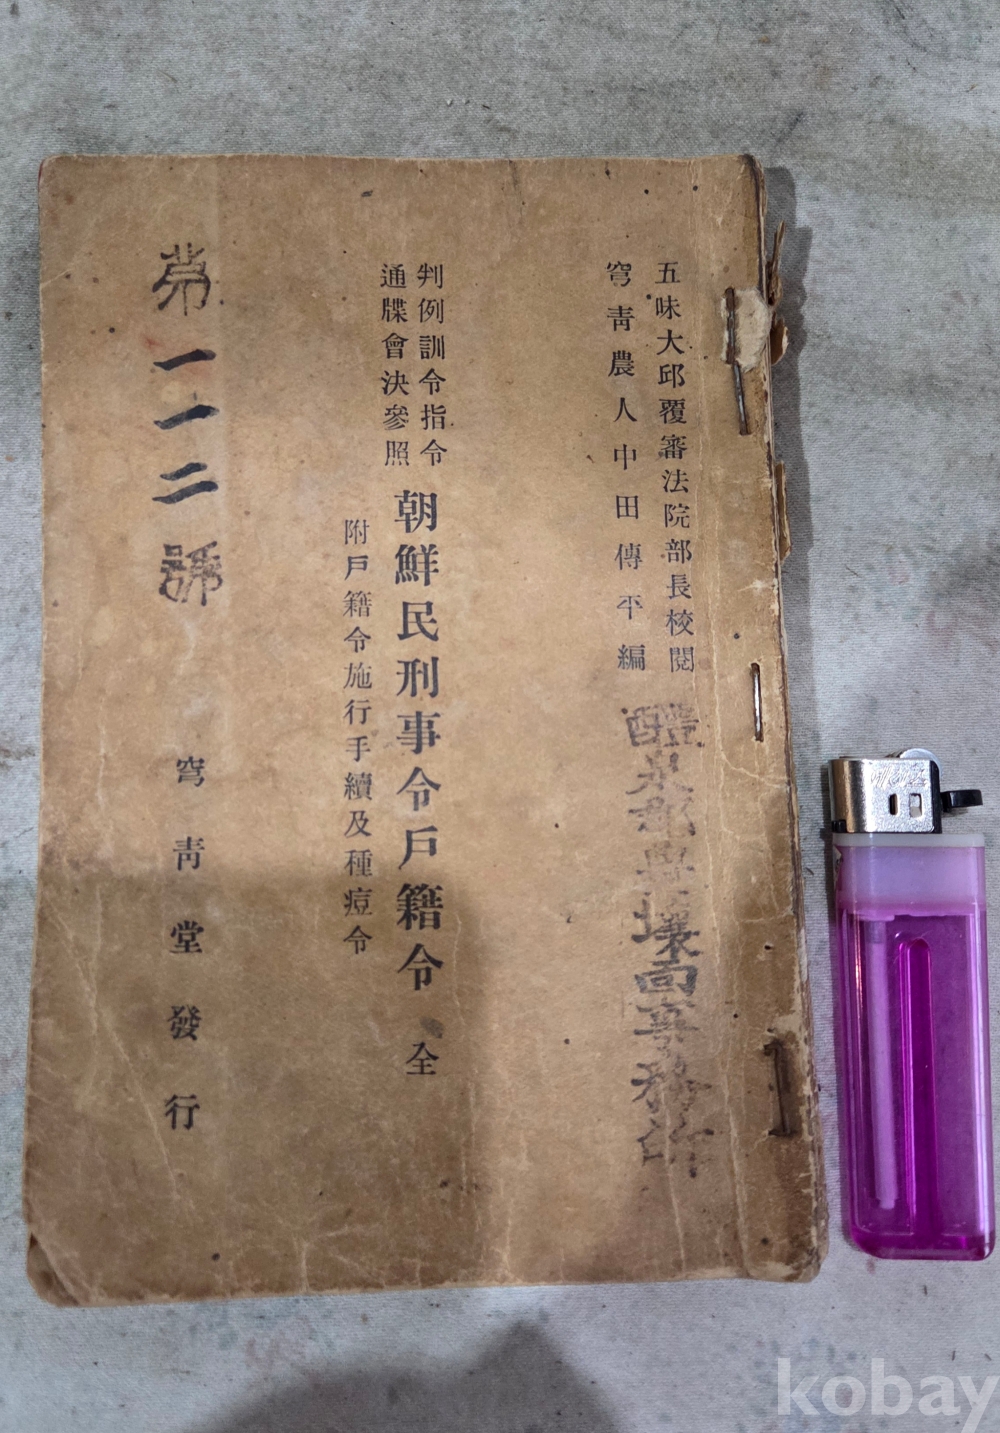 五味大邱覆審法院部長校閱
穹靑農人中田傳平編
醴泉郡豊壤面事務所
判例訓令指令
通牒會決參照
朝鮮民刑事令戶籍令 全
附戶籍令施行手續及種痘令
第一一二號
穹靑堂發行
kobay